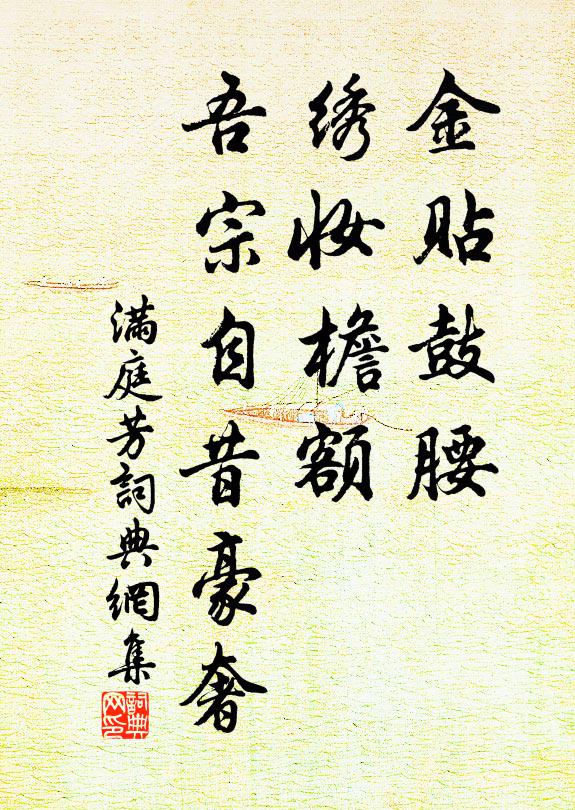 金贴鼓腰
绣妆檐额
吾宗自昔豪奢
满庭芳詞典網集
詞典网印